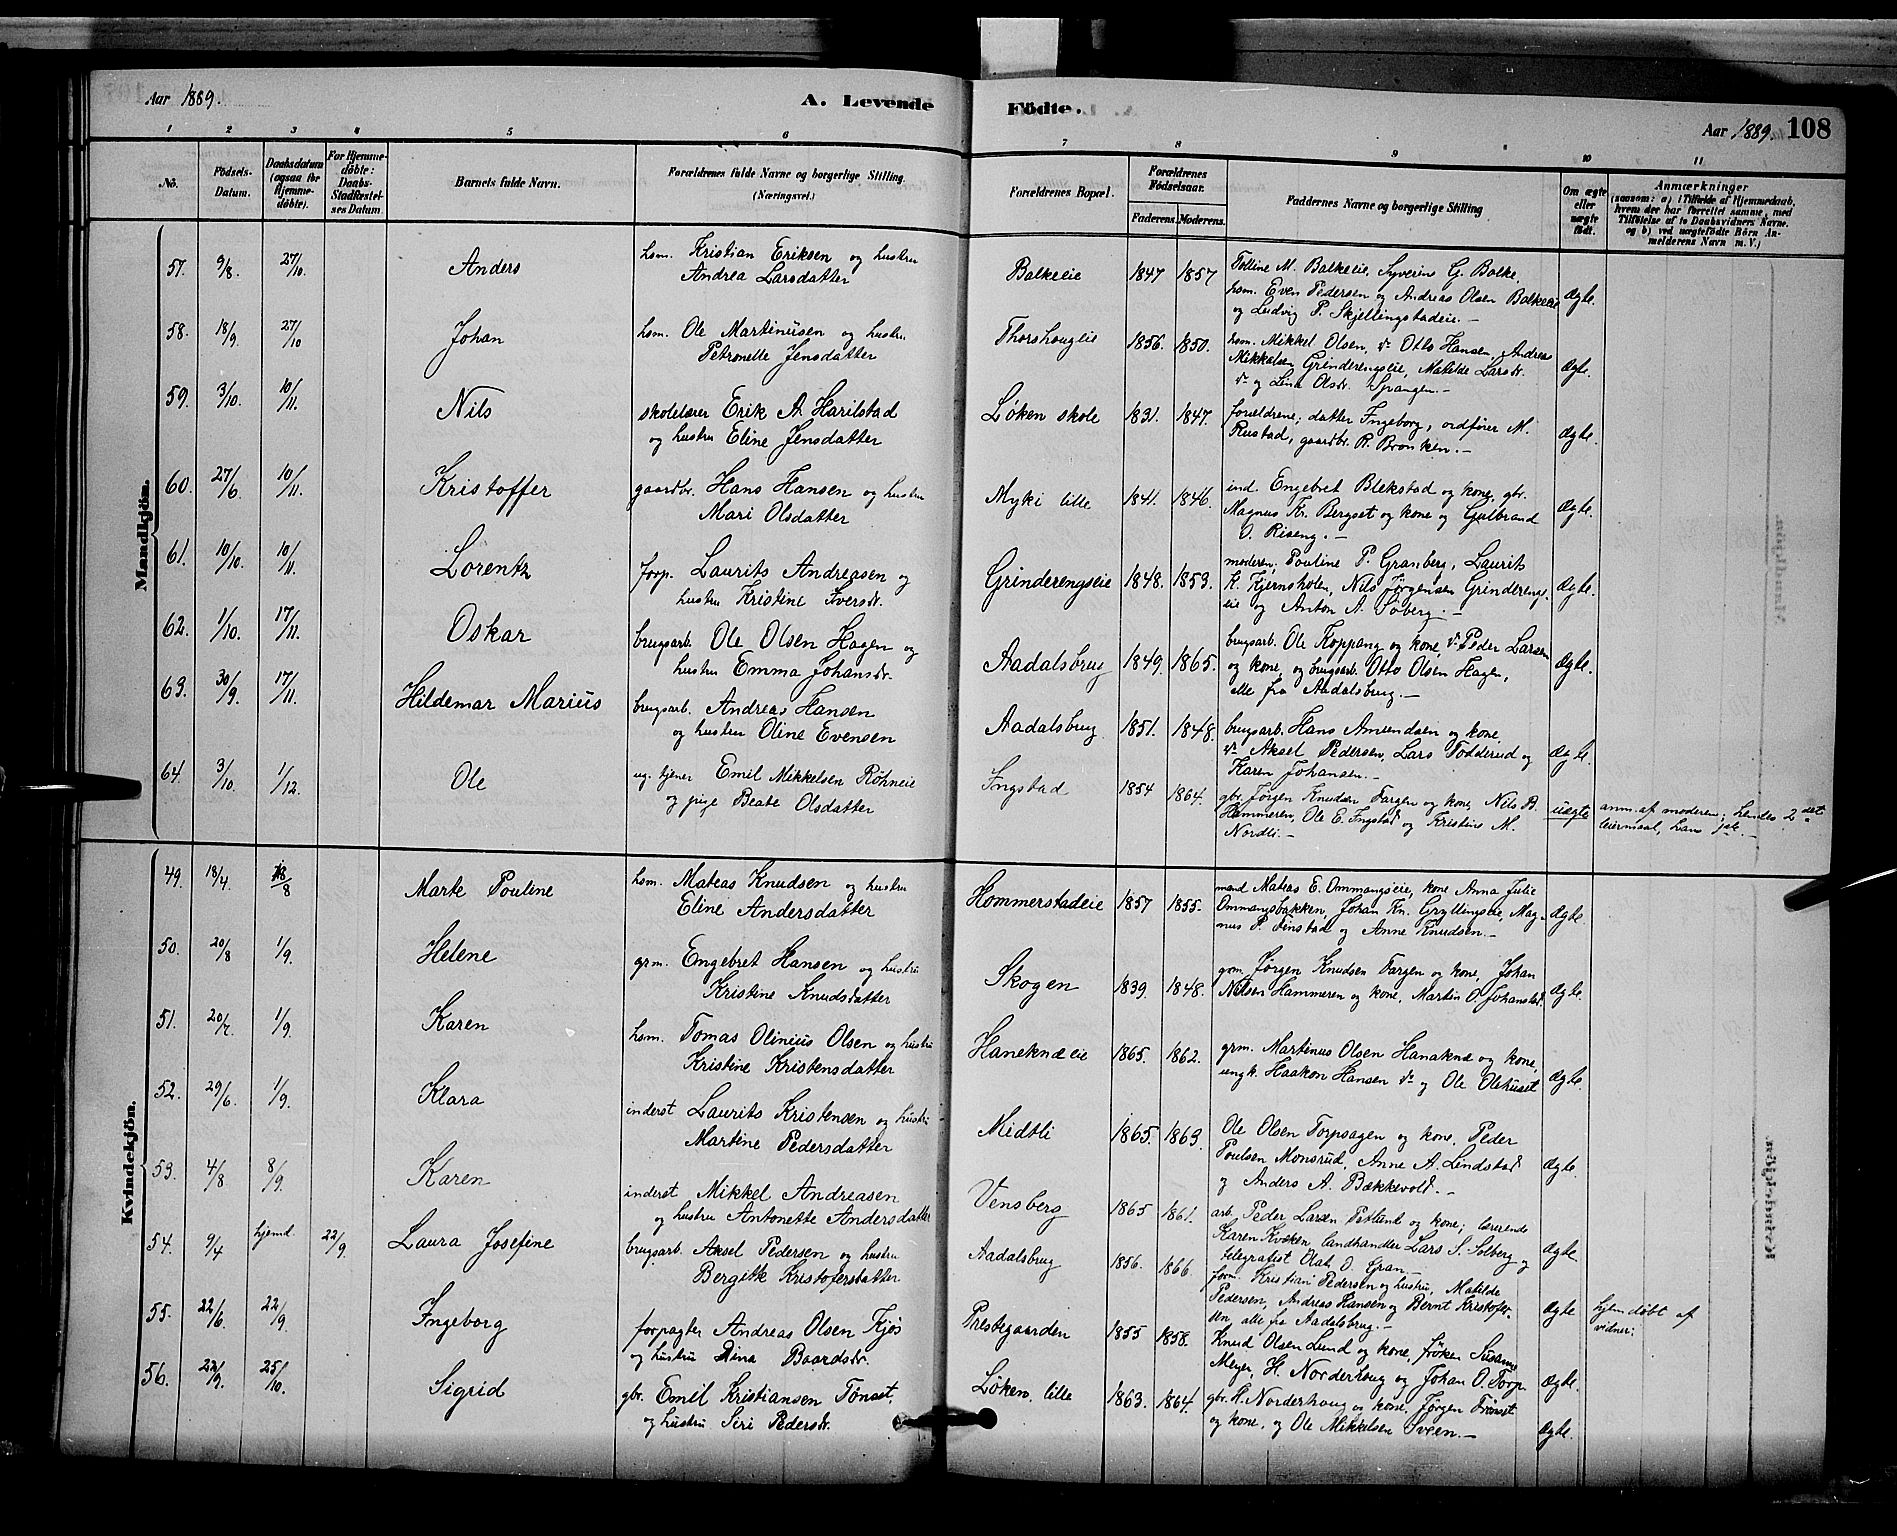 Aar 1889. A. Levende Födte. Aar 1889. 108
1 2 3 4 5 6 7 8 9 10 11
No. Födsels-Datum. Daabsdatum (ogsaa for Hjemmedöbte). For Hjemmedöbte: Daabs-Stadfæstelses Datum. Barnets fulde Navn. Forældrenes fulde Navne og borgerlige Stilling. (Næringsvei.) Forældrenes Bopæl. Forældrenes Födselsaar. Faderens. Moderens. Faddernes Navne og borgerlige Stilling Om ægte eller uægte födt. Anmærkninger (saasom: a) i Tilfælde af Hjemmedaab, hvem der har forrettet samme, med Tilföielse af to Daabsvidners Navne, og b) ved uægtefödte Börn Anmelderens Navn m. V.)
Mandkjön.
57. 9/8. 27/10. Anders hsm. Kristian Eriksen og hustru
Andrea Larsdatter Balkeeie 1847 1857 Tolline M. Balkeeie, Syverine G. Balke,
hsm. Even Pedersen og Andreas Olsen Balkeeie
og Ludvig P. Skjellingstadeie. – Ægte.
58. 18/9. 27/10 Johan hsm. Ole Martinusen og hustru
Petronelle Jensdatter Thorshougeie 1856. 1850. hsm. Mikkel Olsen, do Otto Hansen, Andreas
Mikkelsen Grinderengseie, Matilde Larsdr.
do og Lina Olsdr. Sprangen. – Ægte.
59. 3/10. 10/11. Nils skolelærer Erik A. Harilstad
og hustru Eline Jensdatter Løken skole 1831. 1847. forældrene; datter Ingeborg, ordfører M.
Rustad, gaardbr. P. Bronken. – Ægte.
60. 27/6. 10/11. Kristoffer gaardbr. Hans Hansen og hustru
Mari Olsdatter Myki lille 1841. 1846. ind. Engebret Blekstad og kone, gbr.
Magnus Kr. Bergset og kone og Gulbrand
O. Riseng. – Ægte.
61. 10/10. 10/11. Lorentz forp. Laurits Andreasen og
hustru Kristine Iversdr. Grinderengseie 1848. 1853. moderen, Pouline P. Granberg, Laurits
K. Kjernsholen, Nils Jørgensen Grindereng-
eie og Anton A. Søberg. – Ægte.
62. 1/10. 17/11. Oskar brugsarb. Ole Olsen Hagen og
hustru Emma Johansdr. Aadalsbrug 1849. 1865. brugsarb. Ole Koppang og kone, do Peder Larsen
og kone, og brugsarb. Otto Olsen Hagen,
alle fra Aadalsbrug. – Ægte.
63. 30/9. 17/11. Hildemar Marius brugsarb. Andreas Hansen
og hustru Oline Evensen Aadalsbrug 1851. 1848. brugsarb. Hans Amundsen og kone
do Aksel Pedersen, Lars Todderud og
Karen Johansen. – Ægte
64. 3/10. 1/12. Ole ug. tjener Emil Mikkelsen Røhneie
og pige Beate Olsdatter Ingstad 1854 1864. gbr. Jørgen Knudsen Fargen og kone, Nils P.
Hammeren, Ole E. Ingstad og Kristine M.
Nordli. – uægte anm. af moderen; hendes 2det
leiermaal, hans 1ste. –
Kvindekjön.
49. 18/4. 18/8 Marte Pouline hsm. Mateas Knudsen og hustru
Eline Andersdatter Hommerstadeie 1857 1855. mand Matias E. Ommangseie, kone Anna Julie
Ommangsbakken, Johan Kn. Gryllingseie, Mag-
nus P. Finstad og Anne Knudsen. – Ægte.
50. 20/8 1/9. Helene grm. Engebret Hansen og hustru
Kristine Knudsdatter Skogen 1839. 1848. grm. Jørgen Knudsen Fargen og kone, Johan
Nilsen Hammeren og kone, Martin O. Johanstad. Ægte.
51. 20/7. 1/9. Karen hsm. Tomas Olinius Olsen og hustru
Kristine Kristensdatter Haneknæeie 1865. 1862. grm. Martinus Olsen Hanaknæ og kone,
ungk. Haakon Hansen do og Ole Olshuset Ægte.
52. 29/6. 1/9. Klara inderst Laurits Kristensen og hustru
Martine Pedersdatter Midtli 1865. 1863. Ole Olsen Torpsagen og kone, Peder
Poulsen Monsrud, Anne A. Lindstad
og Anders A. Bækkevold. – Ægte.
53. 4/8 8/9. Karen inderst Mikkel Andreasen
og hustru Antonette Andersdatter Vensberg 1865 1861. arb. Peder Larsen Petlund og kone; lærerinde
Karen Kveken, landhandler Lars S. Solberg og
telegrafist Olaf O. Gran. – Ægte
54. 9/4 hjemd. 22/9. Laura Josefine brugsarb. Aksel Pedersen og hustru
Bergitte Kristofersdatter Aadalsbrug 1856. 1866. form. Kristian Pedersen og hustru, Matilde
Pedersen, Andreas Hansen og Bernt Kristofer-
sen, alle fra Aadalsbrug. – Ægte hjemdøbt af
vidner:
55. 22/6. 22/9. Ingeborg forpagter Andreas Olsen Kjøs
og hustru Dina Baardsdr. Prestegaarden 1855 1858. Knud Olsen Lund og kone, frøken Susanne
Meyer, H. Norderhoug og Johan O. Torp. Ægte.
56. 22/9. 25/10. Sigrid gbr. Emil Kristiansen Tønset,
og hustru Siri Pedersdr. Løken lille 1863. 1864. gbr. H. Norderhoug og kone, Jørgen Frønset
og kone, og Ole Mikkelsen Sveen. – Ægte.